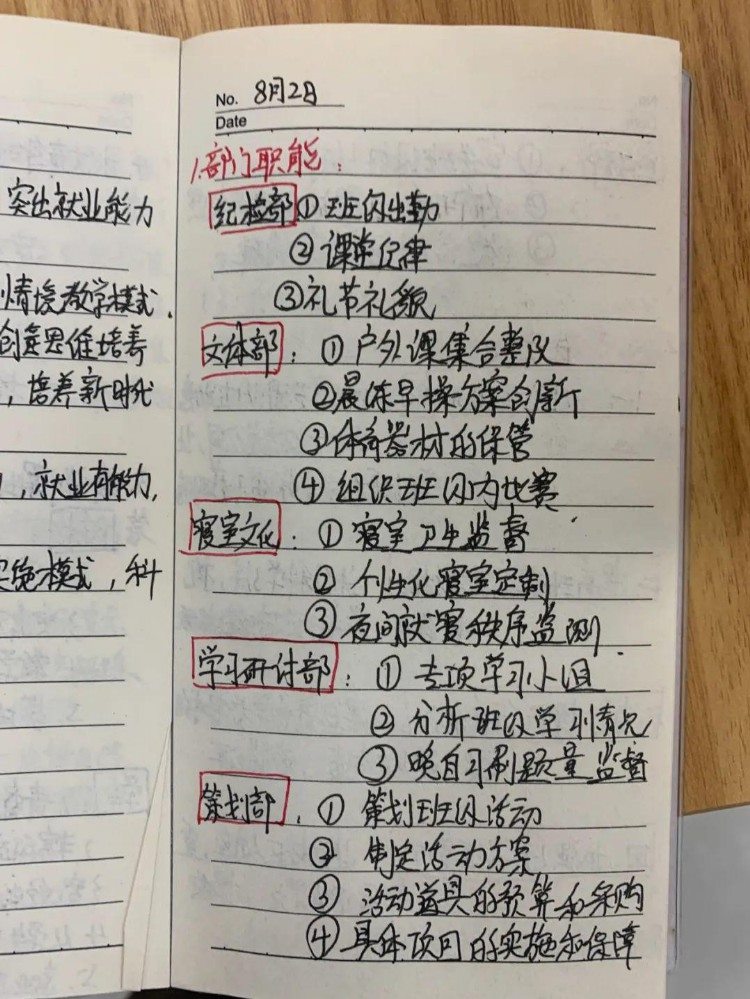 突出就业能力
情境教学模式.
创意思维培养
，培养新时代
，就业有能力,
实统模式，科
No. 8月2日
Date
1.部门职能：
纪检部①班内出勤
②课堂纪律
③礼节礼貌
文体部：①户外课集合整队
②晨练早操方案创新
③体育器材的保管
④组织班内内比赛
寝室文化：①寝室卫生监督
②个性化寝室定制
③夜间就寝秩序监测
学习研讨部：①专项学习小组
②分析班级学习情况
③晚自习刷题量监督
策划部．①策划班级活动
②制定活动方案
③活动道具的预算和采购
④具体项目的实施和保障